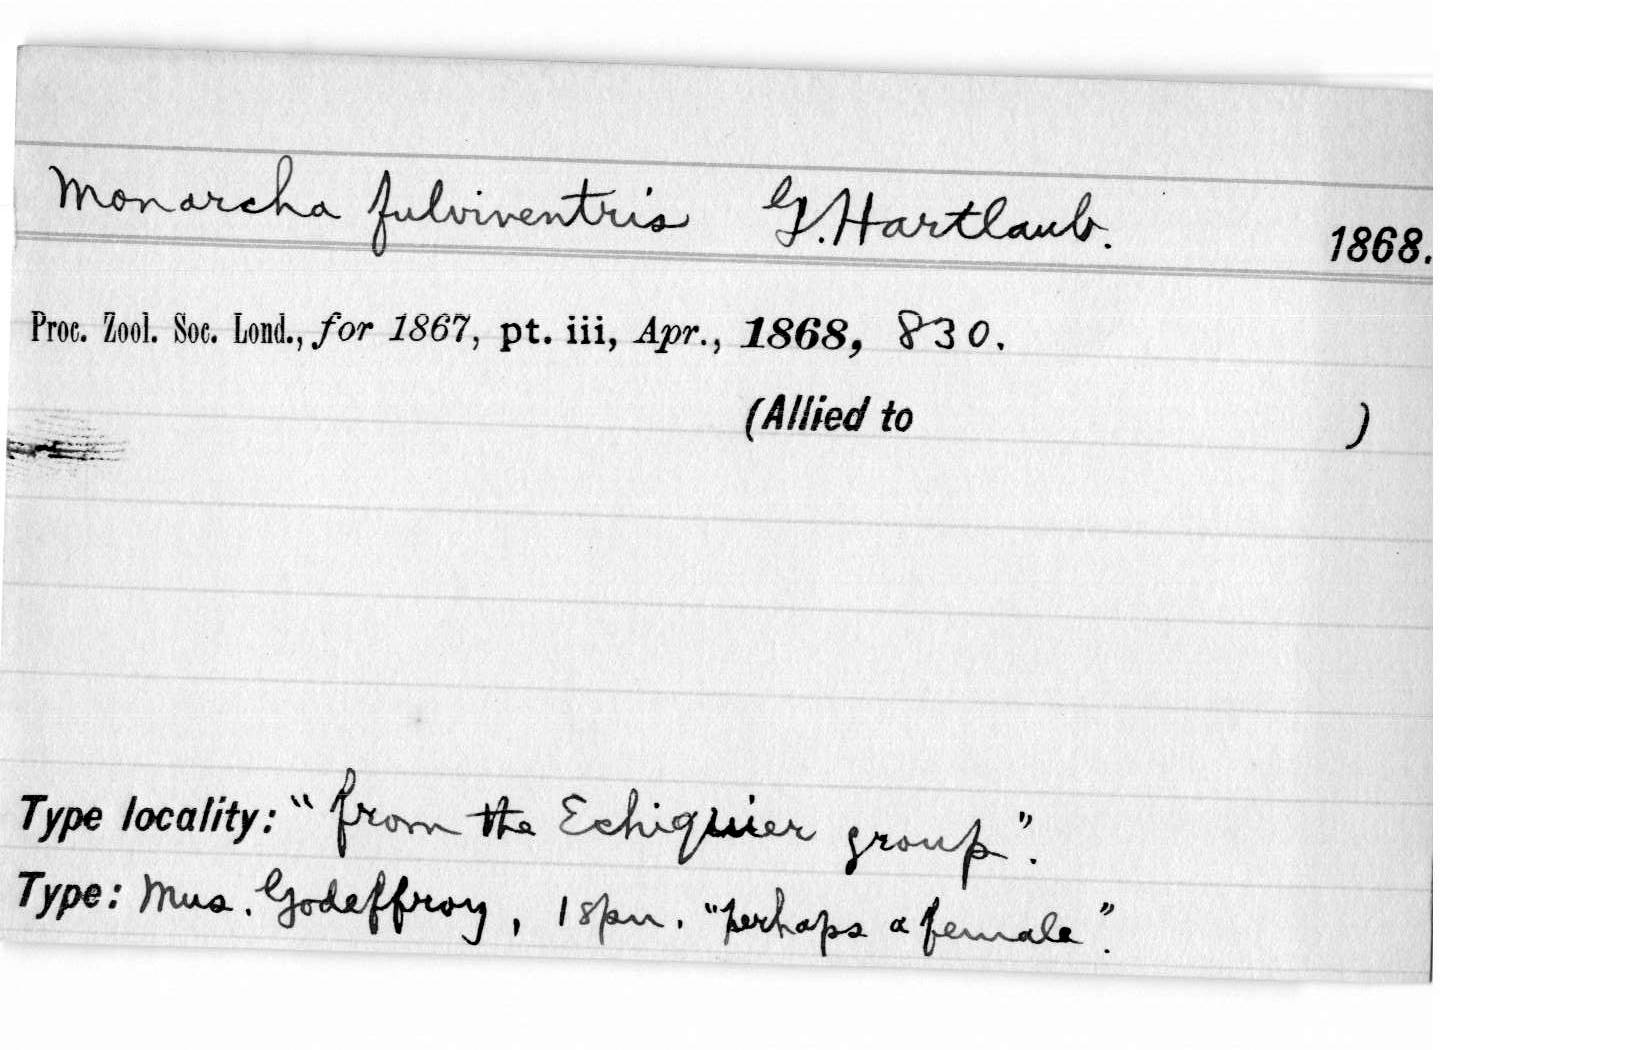 Monarcha fulviventris G. Hartlaub. 1868.
Proc. Zool. Soc. Lond., for 1867, pt. iii, Apr., 1868, 830.
(Allied to )
Type locality: "from the Echiquier group".
Type: Mus. Godeffroy, 1 spn. "perhaps a female".